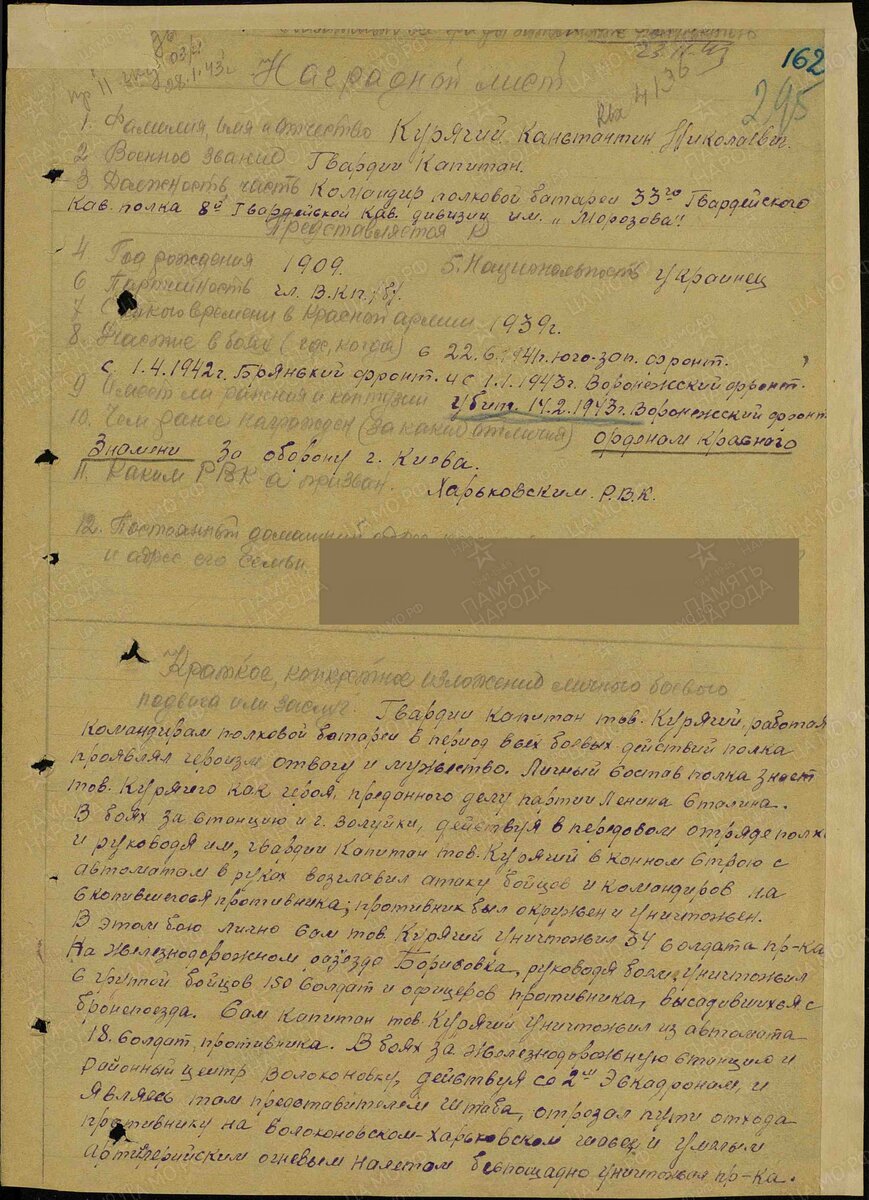 23.II.43
162
пр 11 вку 03/н
28.1.43г
Наградной лист
4136
295
1. Фамилия, имя и отчество Курячий Канстантин Николаевич.
2. Военное звание Гвардии Капитан.
3. Должность, часть Командир полковой батареи 33го Гвардейского
Кав. полка 8й Гвардейской Кав. дивизии им. „Морозова".
Представляется к
4. Год рождения 1909. 5. Национальность украинец
6 Партийность чл. В.К.п./б/.
7 С какого времени в Красной армии 1939г.
8. Участие в боях (где, когда) с 22.6.1941г. юго-зап. фронт.
с 1.4.1942г. Брянский фронт. и с 1.1.1943г. Воронежсский фронт.
9 Имеет ли ранения и контузии Убит 14.2.1943г. Воронежсский фронт
10. Чем ранее награжден (за какие отличия) орденом Красного
Знамени за оборону г. Киева.
11. Каким РВК а призван. Харьковским Р.В.К.
12. Постоянный домашний
и адрес его семьи
Краткое, конкретное изложение личного боевого
подвига или заслуг. Гвардии Капитан тов. Курячий, работая
командирам полковой батареи в период всех боевых действий полка
проявлял героизм отвагу и мужество. Личный состав полка знает
тов. Курячего как героя, преданного делу партии Ленина Сталина.
В боях за станцию и г. Волуйки, действуя в передовом отряде полка
и руководя им, гвардии капитан тов. Курячий в конном строю с
автоматом в руках возглавил атаку бойцов и командиров на
скопившегося противника; противник был окружен и уничтожен.
В этом бою лично сам тов. Курячий уничтожил 34 солдата пр-ка
На железнодорожном раз'езде Борисовка, руководя боем, уничтожил
с группой бойцов 150 солдат и офицеров противника, высадившихся с
бронепоезда. Сам капитан тов. Курячий уничтожил из автомата
18. солдат противника. В боях за железнодорожную станцию и
районный центр Волоконовку, действуя со 2м эскадронам, и
являясь там представителем штаба, отрезал пути отхода
противнику на волоконовском-Харьковском шоссе, и умелым
артиллерийским огневым налетом беспощадно уничтожал пр-ка.
ПАМЯТЬ НАРОДА
ЦАМО.РФ